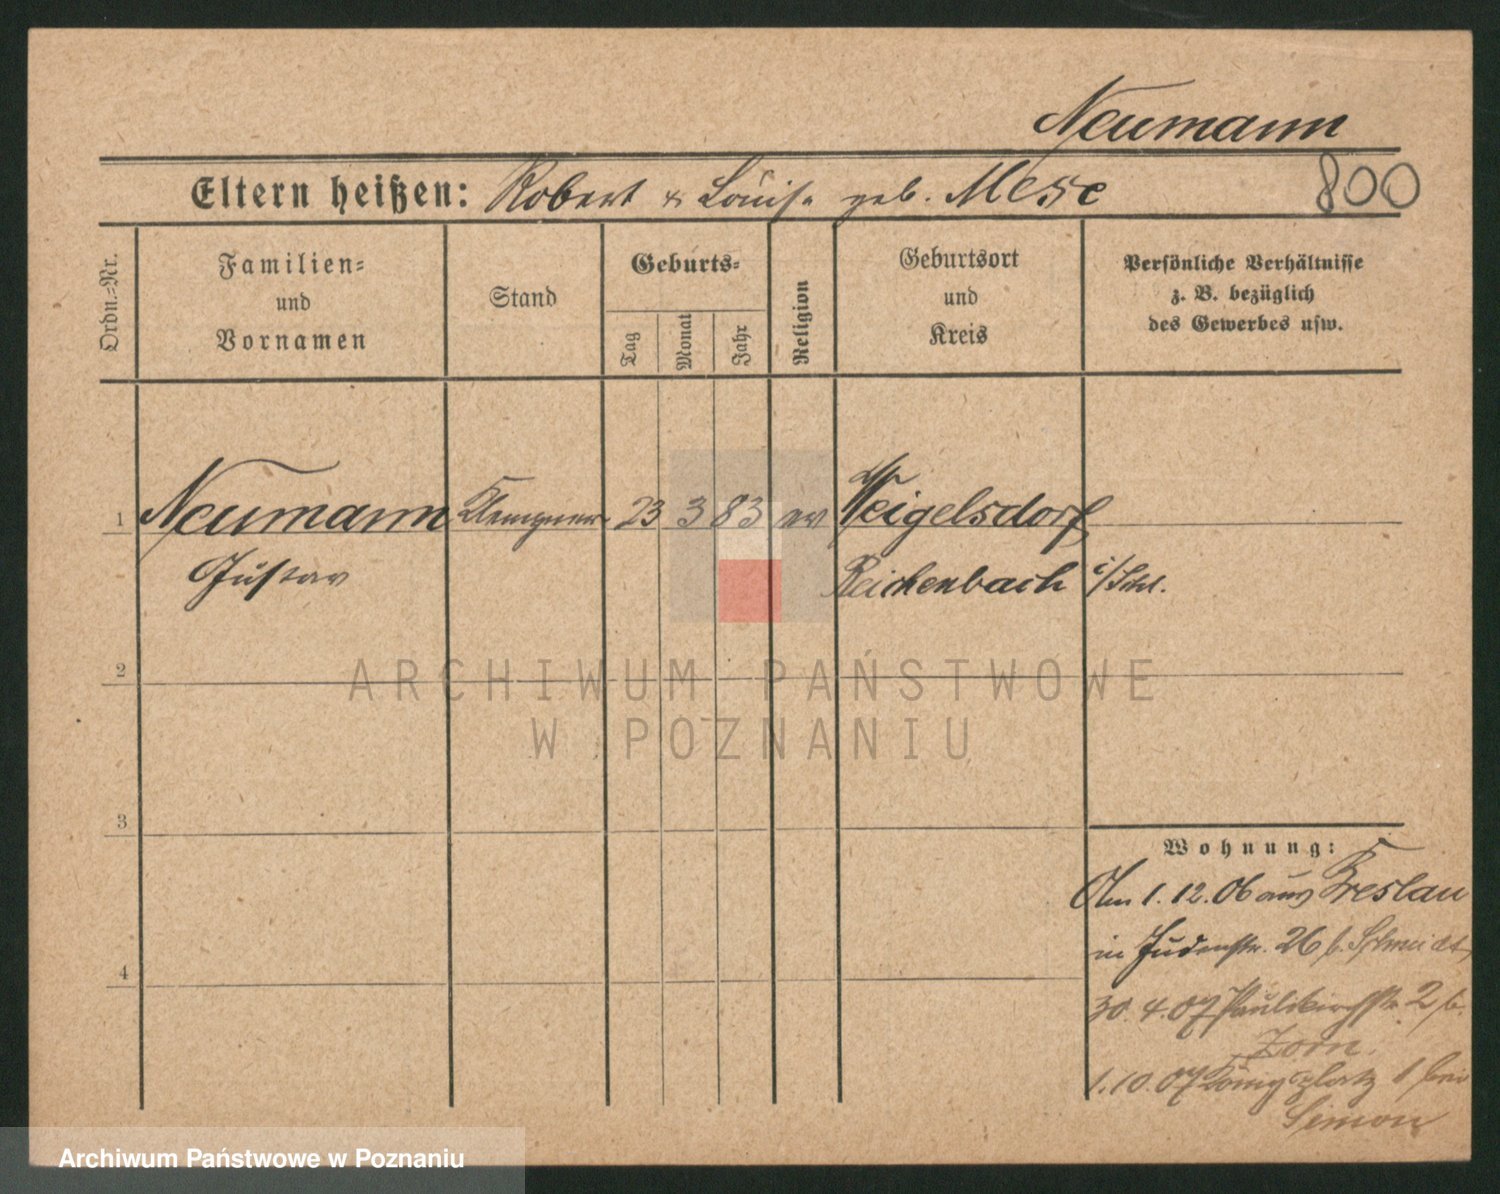 Neumann
Eltern heißen: Robert & Louise geb. Mese
800
Ordn.=Nr.
Familien=
und
Vornamen
Stand
Geburts=
Tag
Monat
Jahr
Religion
Geburtsort
und
Kreis
Persönliche Verhältnisse
z. B. bezüglich
des Gewerbes usw.
1 Neumann Klempner 23 3 83 ev Weigelsdorf
Gustav Reichenbach i/Schl.
2
3
4
Wohnung:
Am 1. 12. 06 aus Breslau
in Judenstr. 26 b. Schmidt
30. 4. 07 Paulikirchstr. 2 b.
Zorn.
1. 10. 07 Königsplatz 1 bei
Simon
ARCHIWUM PAŃSTWOWE
W POZNANIU
Archiwum Państwowe w Poznaniu